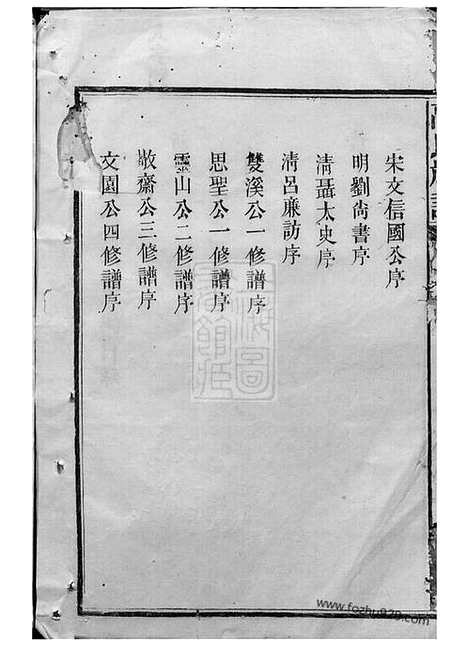 宋文信國公序
明劉尙書序
清聶太史序
清呂廉訪序
雙溪公一修譜序
思聖公一修譜序
靈山公二修譜序
敬齋公三修譜序
文園公四修譜序
www.fozhu920.com